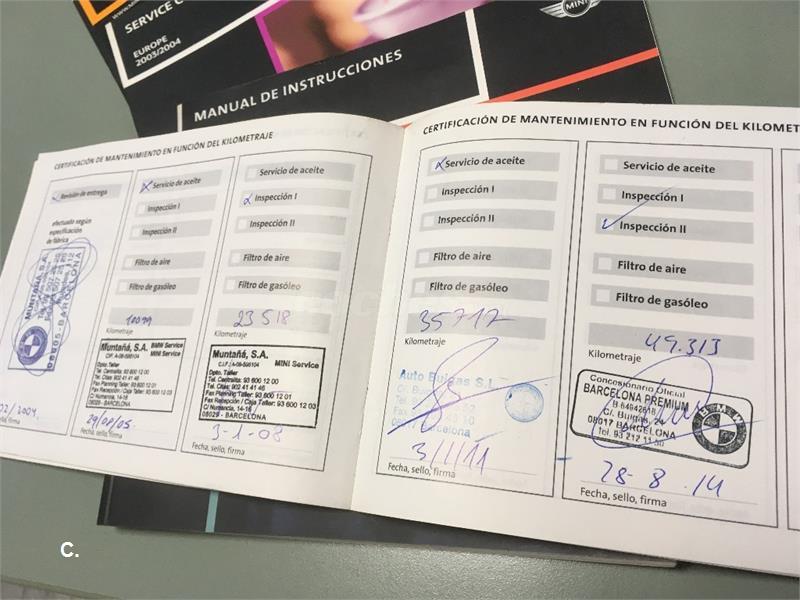 SERVICE
EUROPE
2003/2004
MINI
MANUAL DE INSTRUCCIONES
CERTIFICACIÓN DE MANTENIMIENTO EN FUNCIÓN DEL KILOMETRAJE
Revisión de entrega
efectuado según
especificación
de fábrica
MUNTAÑÁ, S.A.
BARCELONA
Servicio de aceite
Inspección I
Inspección II
Filtro de aire
Filtro de gasóleo
Kilometraje
Muntañá, S.A.
BMW Service
MINI Service
Dpto. Taller
Tel. Centralita: 93 600 12 00
Tel. Citas: 902 41 41 46
Fax Planning Taller: 93 600 12 01
Fax Recepción / Caja Taller: 93 600 12 03
C/ Numancia, 14-16
08029 - BARCELONA
Fecha, sello, firma
Servicio de aceite
Inspección I
Inspección II
Filtro de aire
Filtro de gasóleo
23518
Kilometraje
Muntañá, S.A.
MINI Service
Dpto. Taller
Tel. Centralita: 93 600 12 00
Tel. Citas: 902 41 41 46
Fax Planning Taller: 93 600 12 01
Fax Recepción / Caja Taller: 93 600 12 03
C/ Numancia, 14-16
08029 - BARCELONA
3-1-08
Fecha, sello, firma
CERTIFICACIÓN DE MANTENIMIENTO EN FUNCIÓN DEL KILOMET
Servicio de aceite
Inspección I
Inspección II
Filtro de aire
Filtro de gasóleo
35717
Kilometraje
Auto Buigas S.L.
08017 Barcelona
3/1/11
Fecha, sello, firma
Servicio de aceite
Inspección I
Inspección II
Filtro de aire
Filtro de gasóleo
49.313
Kilometraje
Concesionario Oficial
BARCELONA PREMIUM
C/. Buigas, 24
08017 BARCELONA
BMW
28-8.14
Fecha, sello, firma
C.